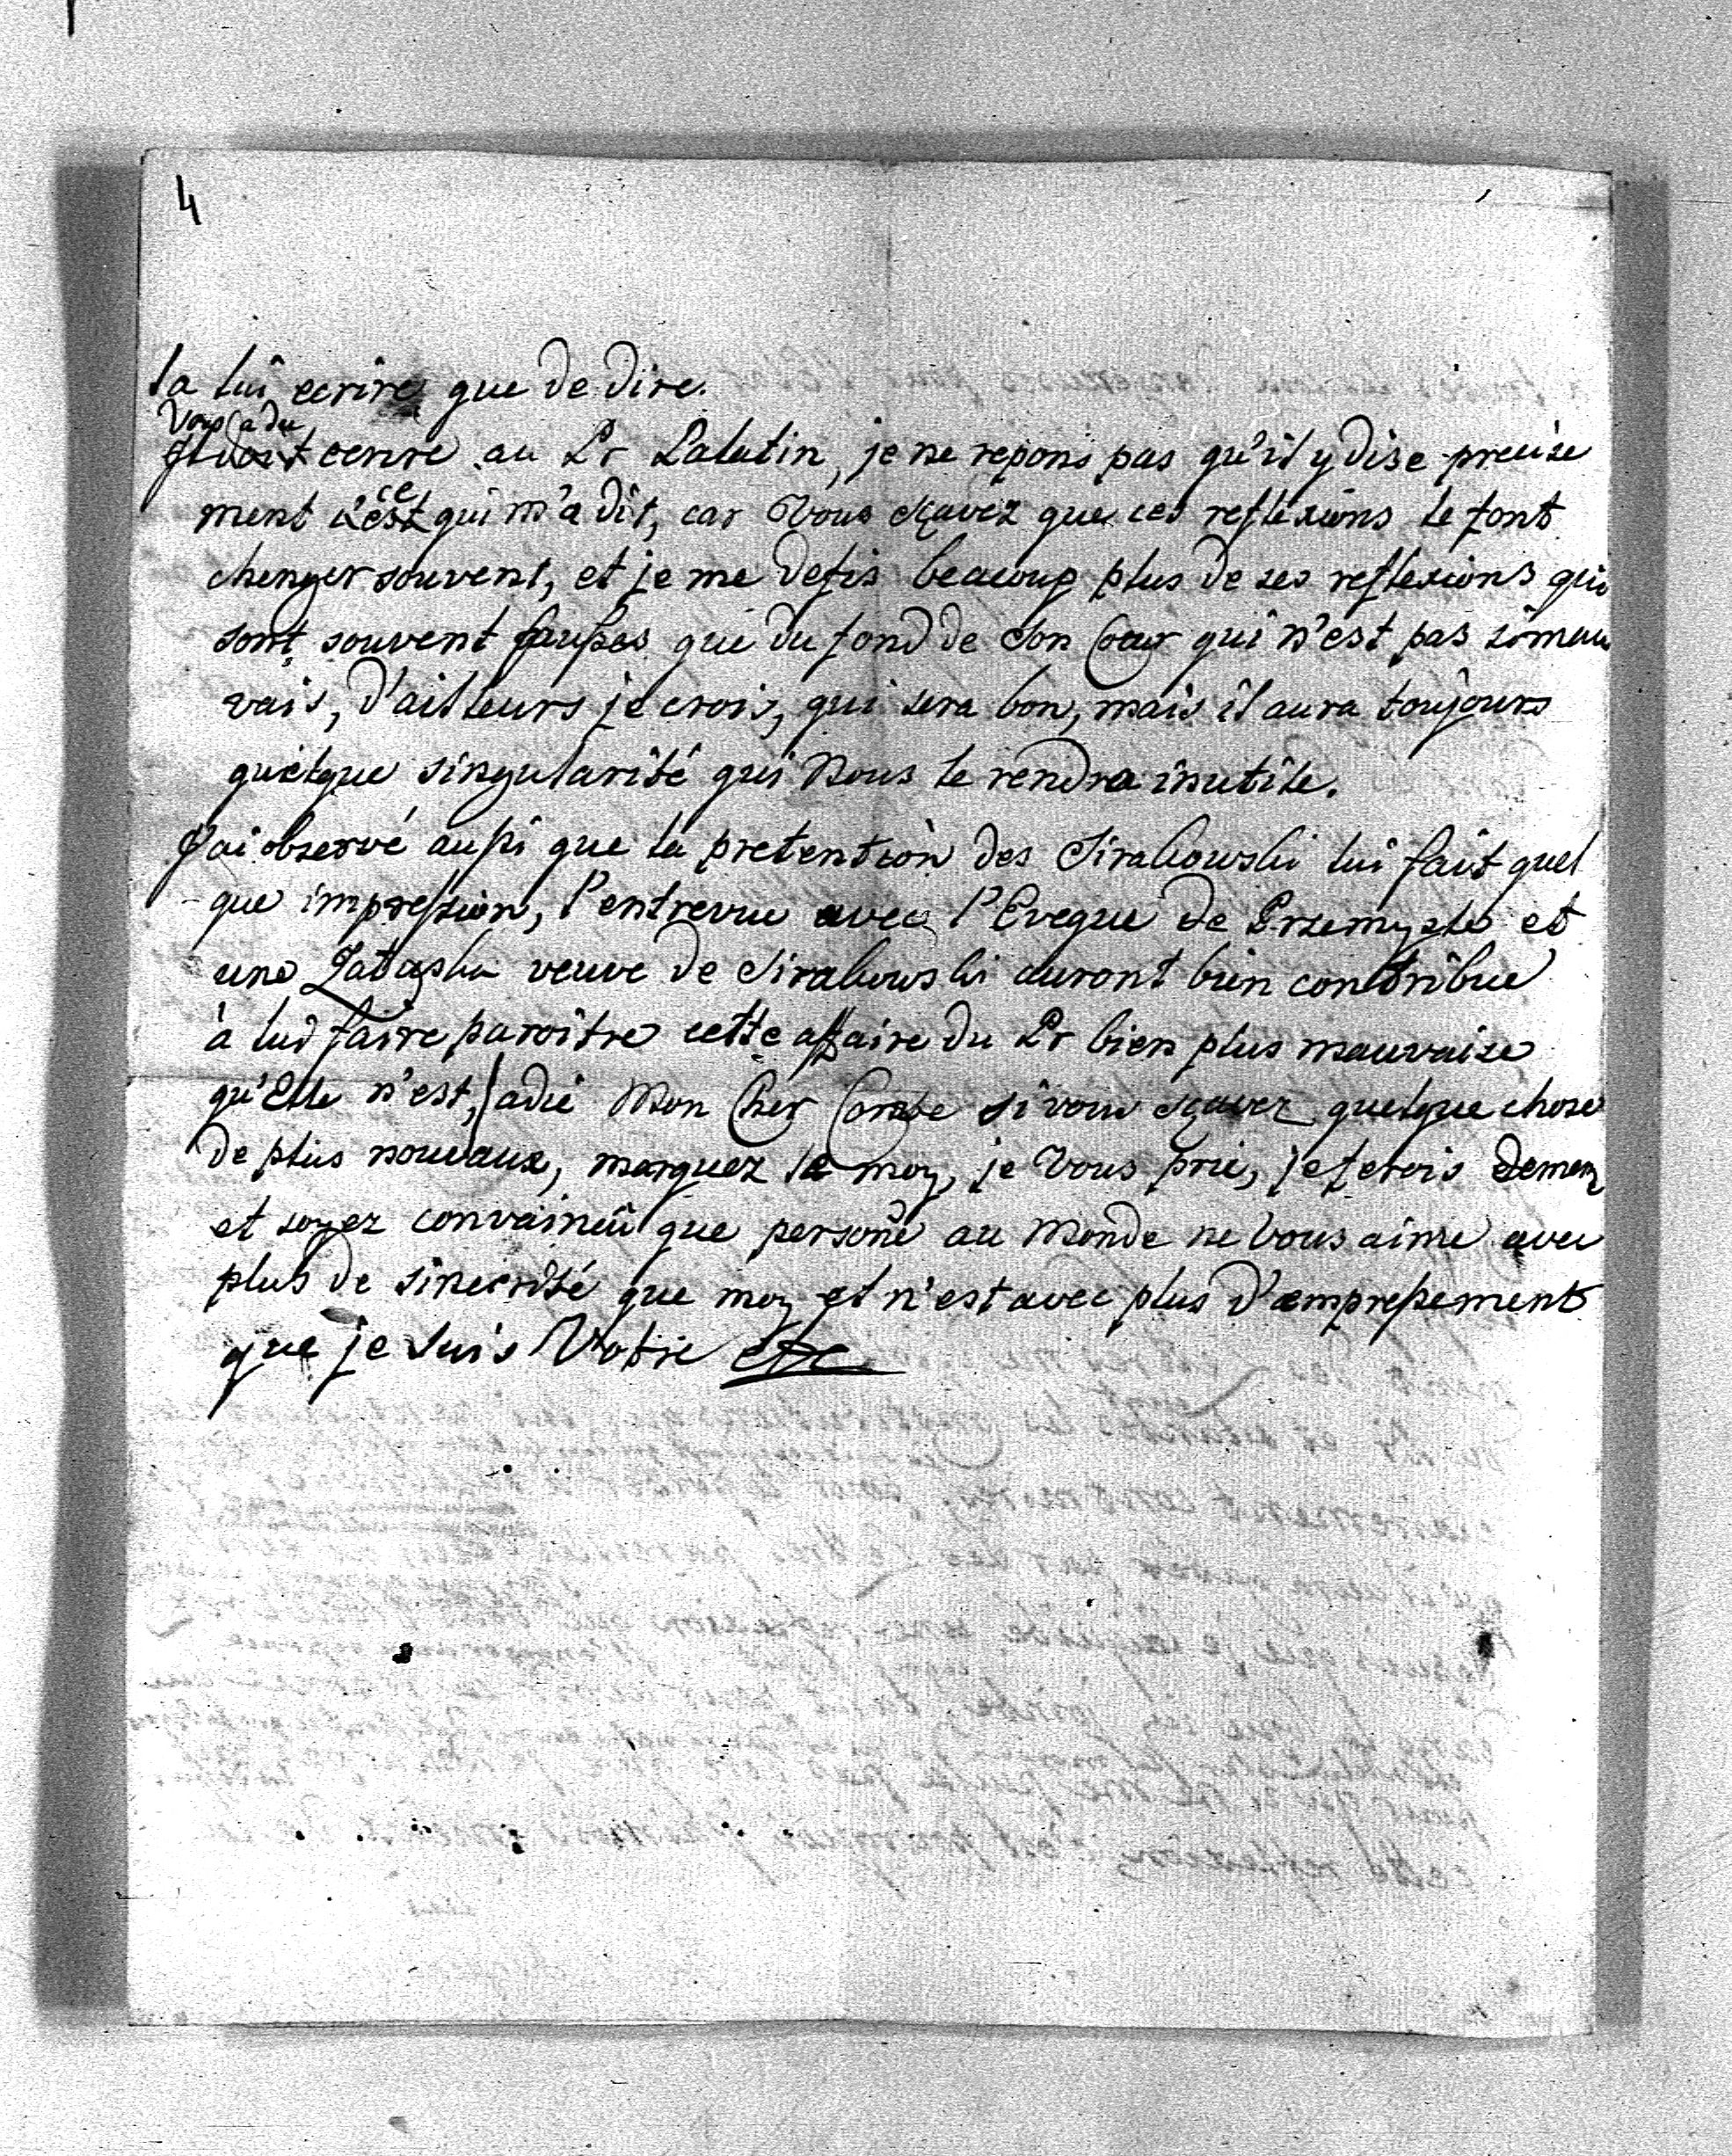 4
la lui ecrire que de dire.
Vous a du
Il doit ecrire au Pr Palatin, je ne repons pas qu'il y dise precise
ment c'est ce qui m'a dit, car Vous sçavez que ces reflexions le font
chenger souvent, et je me defis beaucoup plus de ses reflexions qui
sont souvent fausses que du fond de son Cœur qui n'est pas si mau
vais, d'ailleurs je crois, qui sera bon, mais il aura toujours
quelque singularité qui Nous le rendra inutile.
J'ai observé aussi que la pretention des Sirakowski lui fait quel
que impression, l'entrevue avec l'Eveque de Przemysle et
une veuve de Sirakowski auront bien contribue
à lui faire paroitre cette affaire du Pr bien plus mauvaise
qu'Elle n'est, adie Mon Cher Comte si vous sçavez quelque chose
de plus nouveaux, marquez le moy, je Vous prie, je ferois de meme
et soyez convaincû que persone au Monde ne Vous aime avec
plus de sincerité que moy et n'est avec plus d'empressement
que je suis Votre etc